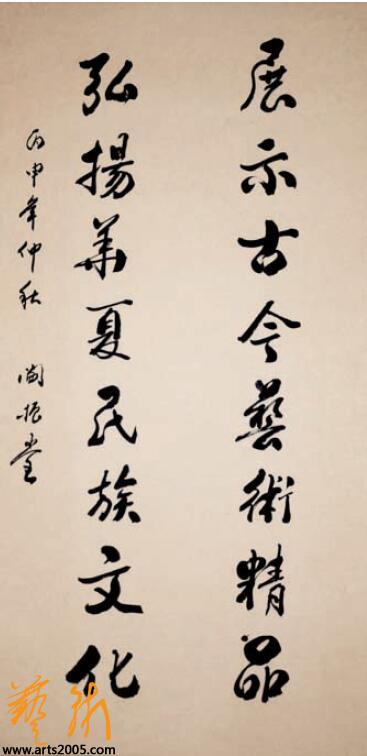 展示古今藝術精品
弘揚華夏民族文化
丙申年仲秋 閻振堂
藝術
www.arts2005.com